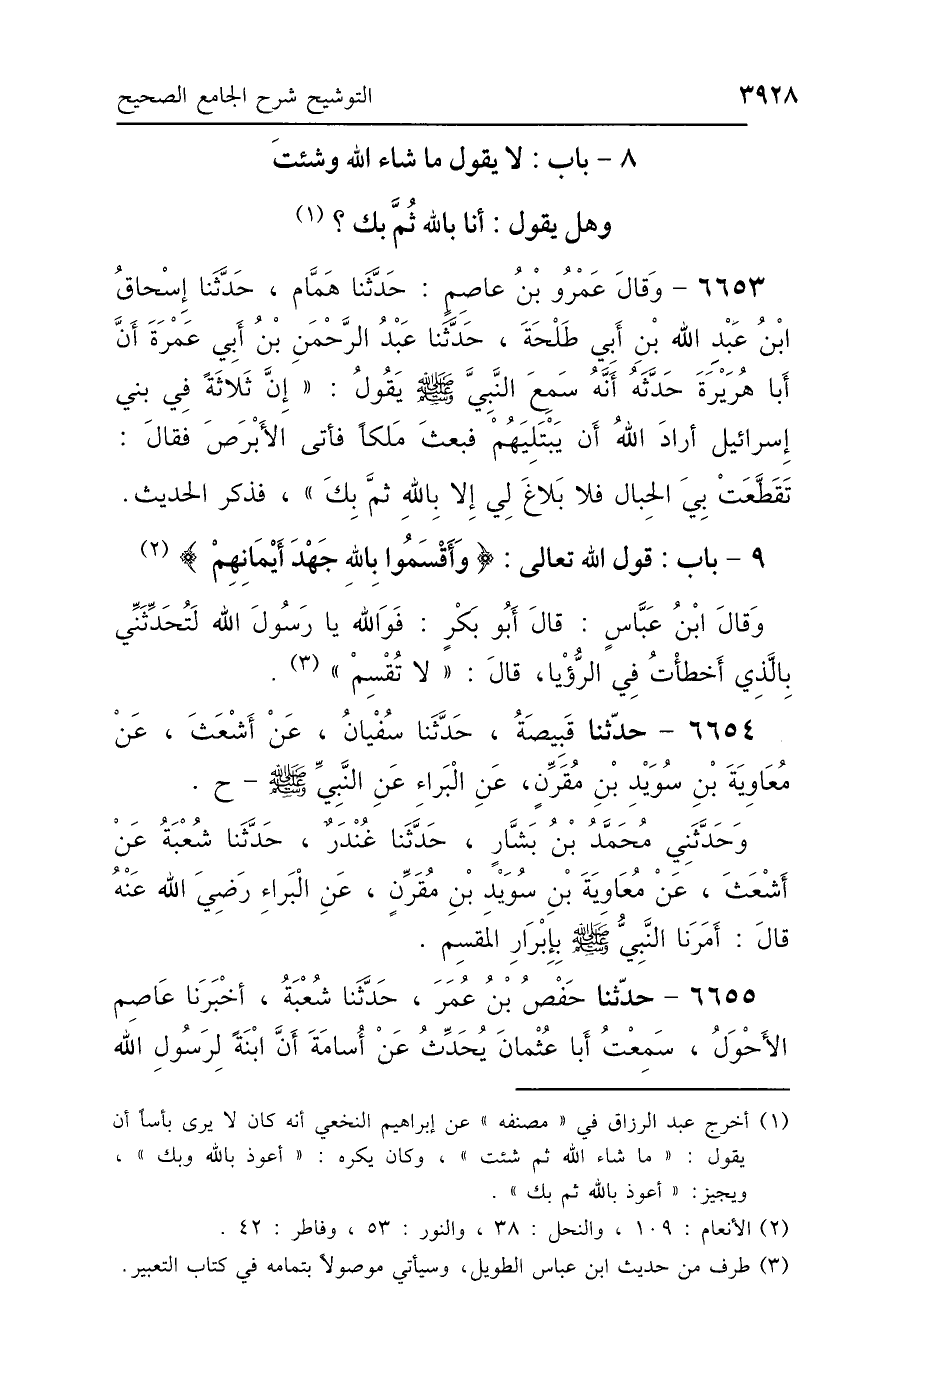 ٣٩٢٨ التوشيح شرح الجامع الصحيح
٨ - باب : لا يقول ما شاء الله وشئتَ
وهل يقول : أنا بالله ثُمَّ بك ؟ (١)
٦٦٥٣ - وَقالَ عَمْرُو بْنُ عاصِمٍ : حَدَّثَنا هَمَّام ، حَدَّثَنا إِسْحاقُ
ابْنُ عَبْدِ الله بْنِ أَبي طَلْحَةَ ، حَدَّثَنا عَبْدُ الرَّحْمَنِ بْنُ أَبي عَمْرَةَ أَنَّ
أَبا هُرَيْرَةَ حَدَّثَهُ أَنَّهُ سَمِعَ النَّبِيَّ ﷺ يَقُولُ : « إِنَّ ثَلاثَةً في بني
إسرائيل أرادَ اللهُ أن يَبْتَلِيَهُمْ فبعثَ مَلكاً فأتى الأَبْرَصَ فقالَ :
تَقَطَّعَتْ بِيَ الحبال فلا بَلاغَ لِي إلا بِاللهِ ثمَّ بِكَ » ، فذكر الحديث.
٩ - باب : قول الله تعالى : ﴿ وَأَقْسَمُوا بالله جَهْدَ أَيْمَانِهِمْ ﴾ (٢)
وَقالَ ابْنُ عَبَّاسٍ : قالَ أَبُو بَكْرٍ : فَوَالله يا رَسُولَ الله لَتُحَدِّثَنِّي
بِالَّذِي أَخطأْتُ فِي الرُّؤْيا، قالَ : « لا تُقْسِمْ » (٣) .
٦٦٥٤ - حدّثنا قَبِيصَةُ ، حَدَّثَنا سُفْيانُ ، عَنْ أَشْعَثَ ، عَنْ
مُعَاوِيَةَ بْنِ سُوَيْدِ بْنِ مُقَرِّنٍ، عَنِ الْبَراءِ عَنِ النَّبِيِّ ﷺ - ح .
وَحَدَّثَنِي مُحَمَّدُ بْنُ بَشَّارٍ ، حَدَّثَنا غُنْدَرٌ ، حَدَّثَنا شُعْبَةُ عَنْ
أَشْعَثَ ، عَنْ مُعَاويةَ بْنِ سُوَيْدِ بْنِ مُقَرِّنٍ ، عَنِ الْبَراءِ رَضِيَ الله عَنْهُ
قالَ : أَمَرَنا النَّبِيُّ ﷺ بِإِبْرَارِ المقسم .
٦٦٥٥ - حدّثنا حَفْصُ بْنُ عُمَرَ ، حَدَّثَنا شُعْبَةُ ، أَخْبَرَنا عَاصِم
الأَحْوَلُ ، سَمِعْتُ أَبا عُثْمانَ يُحَدِّثُ عَنْ أُسامَةَ أَنَّ ابْنَةً لِرَسُولِ الله
(١) أخرج عبد الرزاق في « مصنفه » عن إبراهيم النخعي أنه كان لا يرى بأساً أن
يقول : « ما شاء الله ثم شئت » ، وكان يكره : « أعوذ بالله وبك » ،
ويجيز: « أعوذ بالله ثم بك » .
(٢) الأنعام : ١٠٩ ، والنحل : ٣٨ ، والنور : ٥٣ ، وفاطر : ٤٢ .
(٣) طرف من حديث ابن عباس الطويل، وسيأتي موصولاً بتمامه في كتاب التعبير.